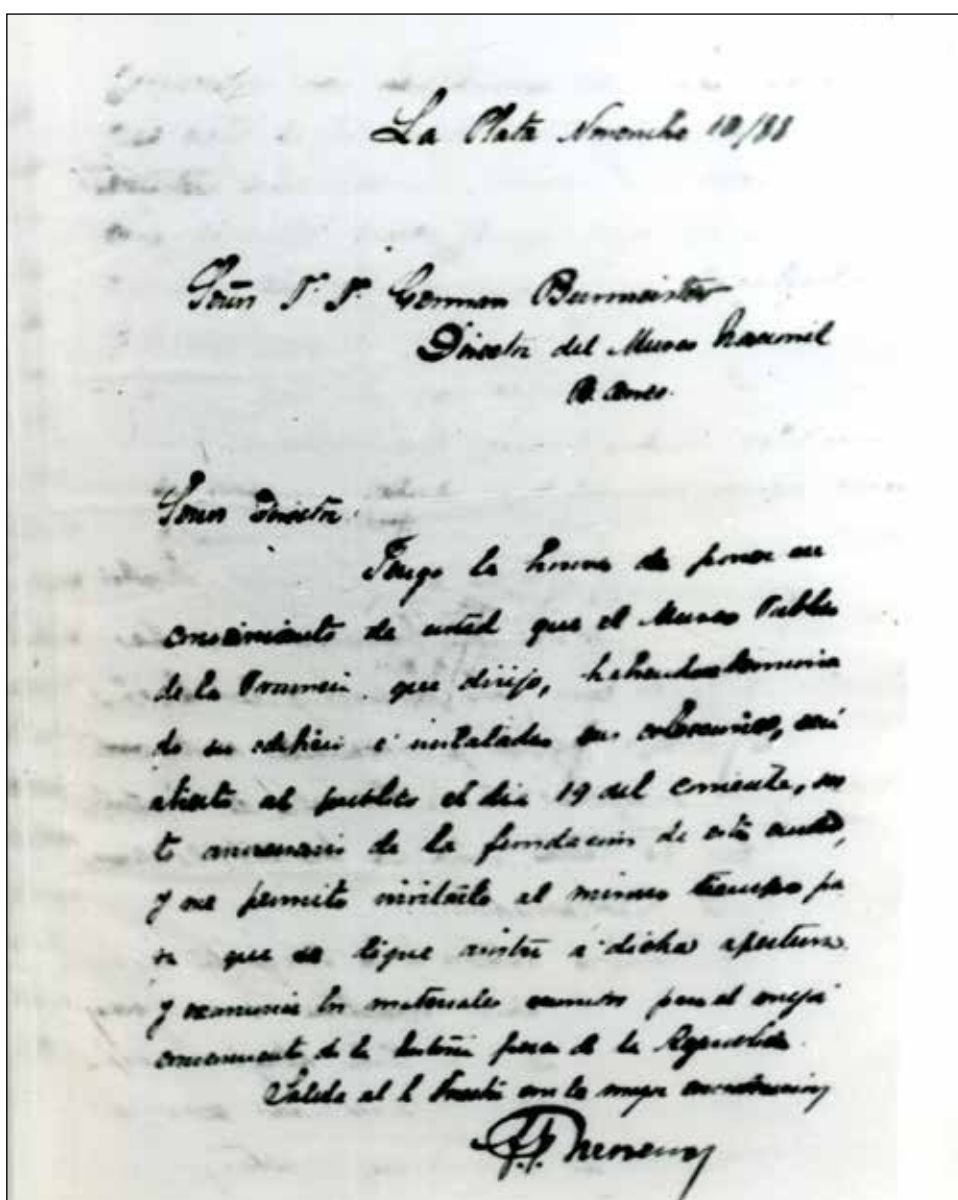 La Plata Noviembre 10/88
Señor Dr. Dr. German Burmeister
Director del Museo Nacional
B. Aires.
Señor Director.
Tengo la honra de poner en
conocimiento de usted que el Museo Público
de la Provincia que dirijo, habiendose termina
do su edificio é instalado sus colecciones, será
abierto al publico el dia 19 del corriente, sex
to aniversario de la fundacion de esta ciudad,
y me permito invitarlo al mismo tiempo pa
ra que se digne asistir á dicha apertura
y examinar los materiales reunidos para el mejor
conocimiento de la historia fisica de la Republica.
Saluda al S. Director con la mayor consideracion
F. P. Moreno